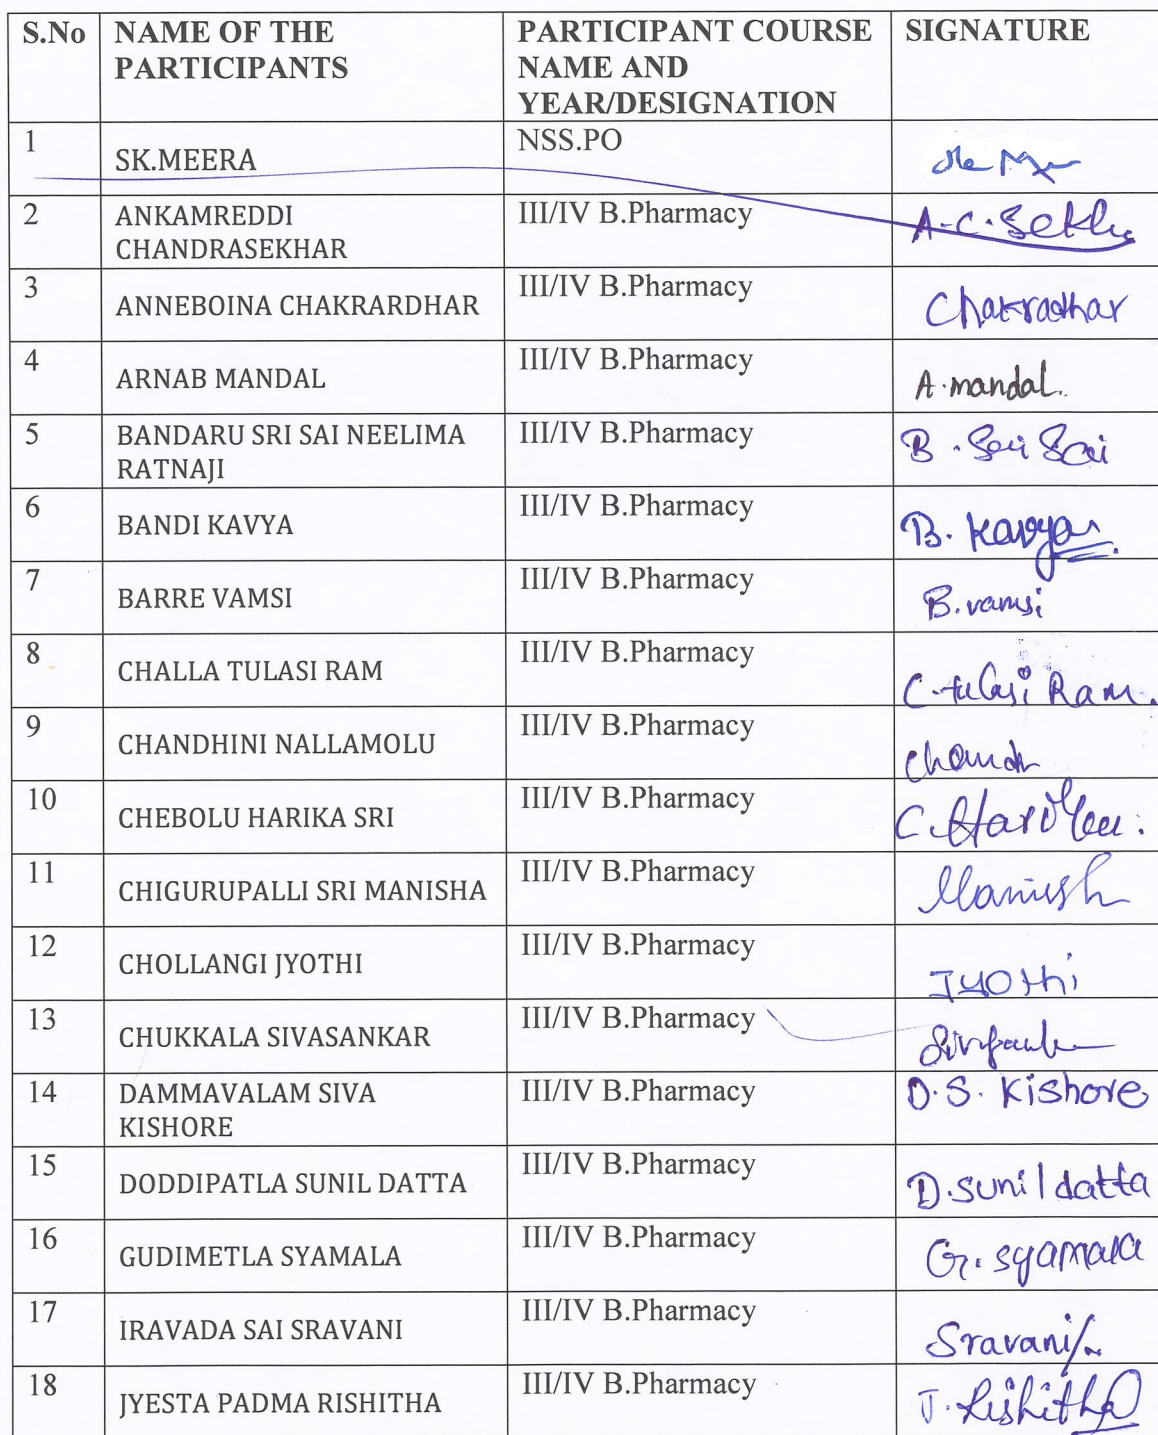 S.No NAME OF THE PARTICIPANTS PARTICIPANT COURSE NAME AND YEAR/DESIGNATION SIGNATURE
1 SK.MEERA NSS.PO
2 ANKAMREDDI CHANDRASEKHAR III/IV B.Pharmacy A.C.Sekhar
3 ANNEBOINA CHAKRARDHAR III/IV B.Pharmacy Chakradhar
4 ARNAB MANDAL III/IV B.Pharmacy A.mandal.
5 BANDARU SRI SAI NEELIMA RATNAJI III/IV B.Pharmacy B. Sri Sai
6 BANDI KAVYA III/IV B.Pharmacy B. Kavya
7 BARRE VAMSI III/IV B.Pharmacy B.vamsi
8 CHALLA TULASI RAM III/IV B.Pharmacy C.tulasi Ram.
9 CHANDHINI NALLAMOLU III/IV B.Pharmacy
10 CHEBOLU HARIKA SRI III/IV B.Pharmacy
11 CHIGURUPALLI SRI MANISHA III/IV B.Pharmacy Manish
12 CHOLLANGI JYOTHI III/IV B.Pharmacy Jyothi
13 CHUKKALA SIVASANKAR III/IV B.Pharmacy
14 DAMMAVALAM SIVA KISHORE III/IV B.Pharmacy D.S. Kishore
15 DODDIPATLA SUNIL DATTA III/IV B.Pharmacy D.sunil datta
16 GUDIMETLA SYAMALA III/IV B.Pharmacy G. syamala
17 IRAVADA SAI SRAVANI III/IV B.Pharmacy Sravani
18 JYESTA PADMA RISHITHA III/IV B.Pharmacy J. Rishitha